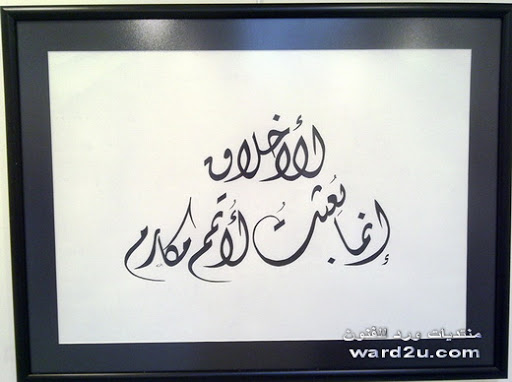 الأخلاق
إنما بُعثتُ لأُتمم مكارم
منتديات ورد للفنون
ward2u.com